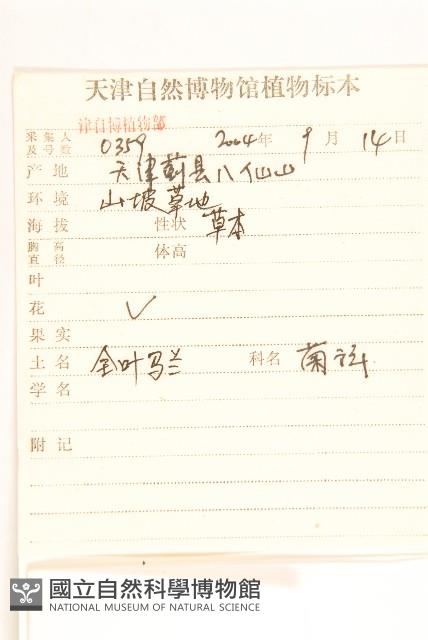 天津自然博物馆植物标本
津自博植物部
采集人及号数 0359 2004年 9月 14日
产地 天津蓟县八仙山
环境 山坡草地
海拔 性状 草本
胸高直径 体高
叶
花 √
果实
土名 全叶马兰 科名 菊科
学名
附记
國立自然科學博物館
NATIONAL MUSEUM OF NATURAL SCIENCE